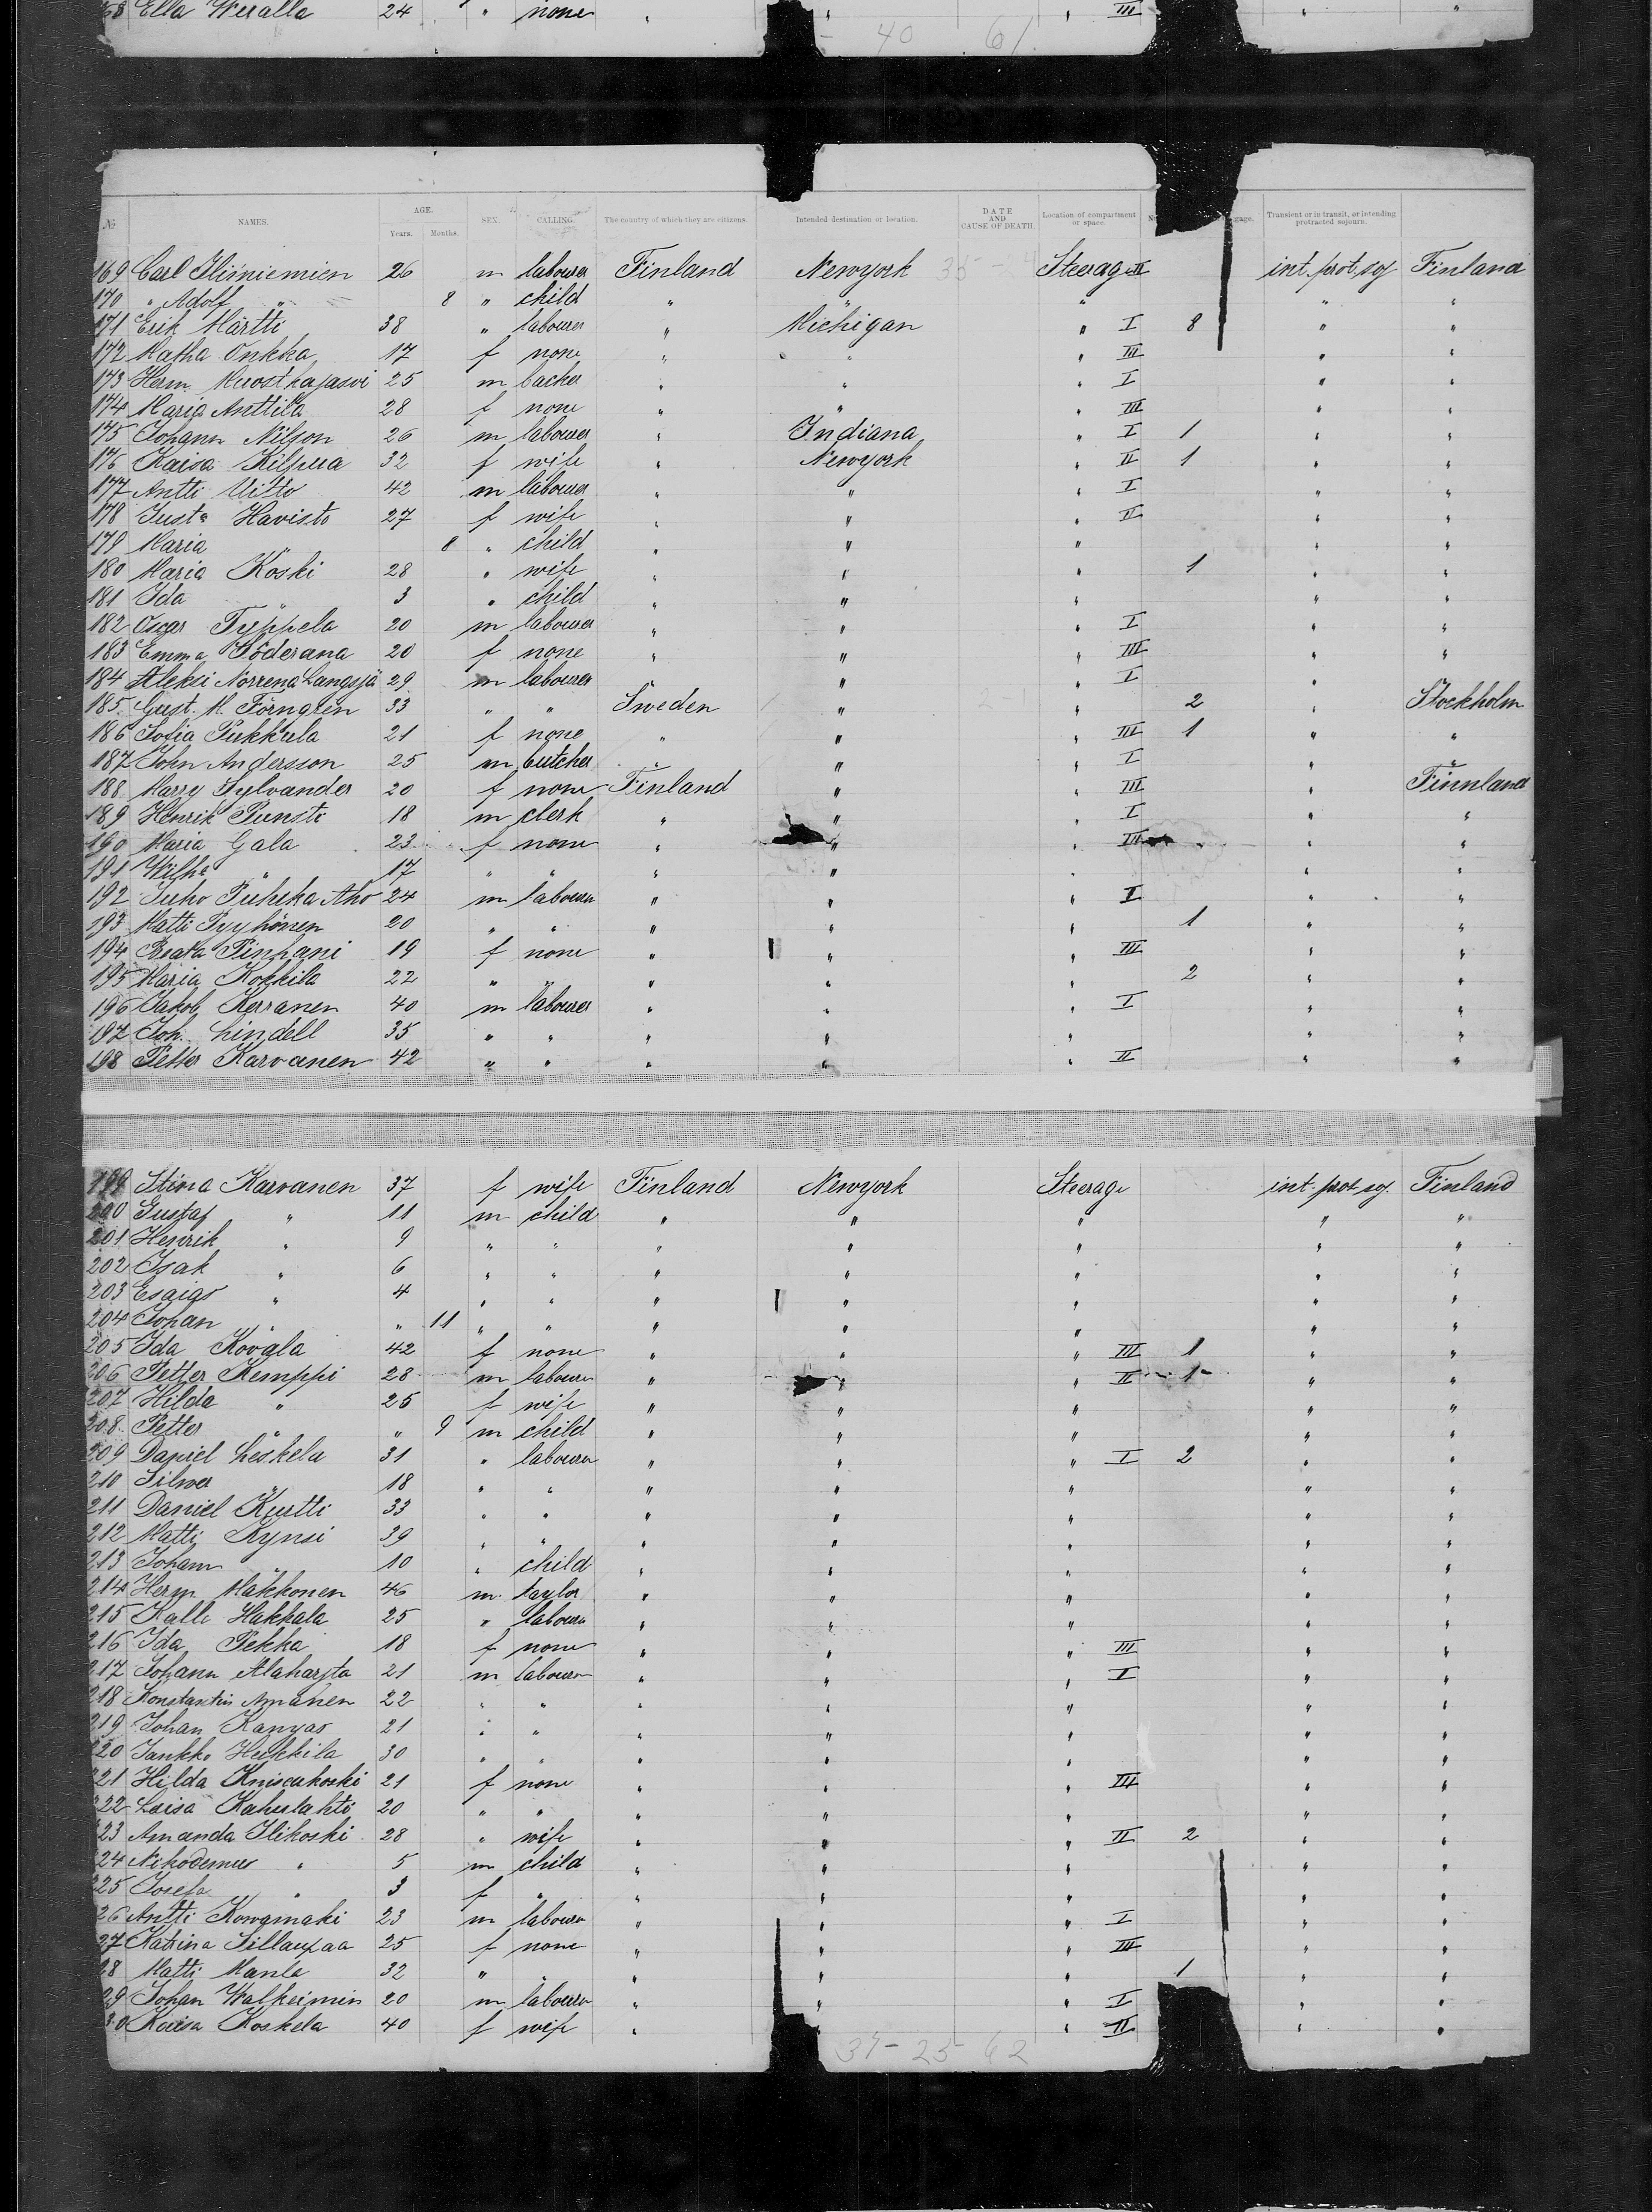 68 Ella Weralla 24 " none " " " III " "
- 40 61.
№ NAMES. AGE. Years. Months. SEX. CALLING. The country of which they are citizens. Intended destination or location. DATE AND CAUSE OF DEATH. Location of compartment or space. Transient or in transit, or intending protracted sojourn.
169 Carl Iliniemien 26 m labourer Finland Newyork Steerage II int. prot. soj Finland
170 " Adolf " 8 " child " " " " "
171 Erik Märtti 38 " labourer " Michigan " I 8 " "
172 Matha Onkka 17 f none " " " III " "
173 Herm. Muostkajasvi 25 m backer " " " I " "
174 Maria Anttila 28 f none " " " III " "
175 Johann Nilson 26 m labourer " Indiana " I 1 " "
176 Kaisa Kilpua 32 f wife " Newyork " II 1 " "
177 Antti Uitto 42 m labourer " " " I " "
178 Justa Havisto 27 f wife " " " II " "
179 Maria " 8 " child " " " " "
180 Maria Koski 28 " wife " " " 1 " "
181 Ida " 3 " child " " " " "
182 Oscar Typpela 20 m labourer " " " I " "
183 Emma Söderana 20 f none " " " III " "
184 Aleksi Norrena Langsjä 29 m labourer " " " I "
185 Gust. M. Törngren 33 " " Sweden " " 2 " Stockholm
186 Sofia Pukkula 21 f none " " " III 1 " "
187 John Andersson 25 m butcher " " " I " "
188 Marry Sylvander 20 f none Finland " " III " Finnland
189 Henrik Punsti 18 m clerk " " " I " "
190 Maria Gala 23 f none " " " III " "
191 Wilha " 17 " " " " " " "
192 Juho Puheka Aho 24 m labourer " " " I " "
193 Matti Pyyhönen 20 " " " " " 1 " "
194 Beata Pinhani 19 f none " " " III " "
195 Maria Kokkila 22 " " " " " 2 " "
196 Jakob Kerranen 40 m labourer " " " I " "
197 Joh. Lindell 35 " " " " " " "
198 Petter Karvanen 42 " " " " " II " "
199 Stina Karvanen 37 f wife Finland Newyork Steerage int. prot. soj. Finland
200 Gustaf " 11 m child " " " " "
201 Henrik " 9 " " " " " " "
202 Isak " 6 " " " " " " "
203 Esaias " 4 " " " " " " "
204 Johan " " 11 " " " " " " "
205 Ida Kovala 42 f none " " " III 1 " "
206 Petter Kemppi 28 m labourer " " " II 1 " "
207 Hilda " 25 f wife " " " " "
208 Petter " " 9 m child " " " " "
209 Daniel Leskela 31 " labourer " " " I 2 " "
210 Silwer " 18 " " " " " " "
211 Daniel Kurtti 33 " " " " " " "
212 Matti Kynsi 39 " " " " " " "
213 Johann " 10 " child " " " " "
214 Herm Makkonen 46 m taylor " " " " "
215 Kalle Hakkala 25 " labourer " " " " "
216 Ida Pekka 18 f none " " " III " "
217 Johann Alaharjta 21 m labourer " " " I " "
218 Konstantin Amanen 22 " " " " " " "
219 Johan Kangas 21 " " " " " " "
220 Jankko Heikkila 30 " " " " " " "
221 Hilda Kniscakoski 21 f none " " " III " "
222 Loisa Kahulahti 20 " " " " " " "
223 Amanda Ilikoski 28 " wife " " " II 2 " "
224 Nikodemus " 5 m child " " " " "
225 Josefa " 3 f " " " " " "
26 Antti Kowamaki 23 m labourer " " " I " "
27 Katrina Sillaupaa 25 f none " " " III " "
28 Matti Manla 32 " " " " " 1 " "
29 Johan Walkeimin 20 m labourer " " " I " "
30 Kaisa Koskela 40 f wife " " " II " "
37 - 25 62